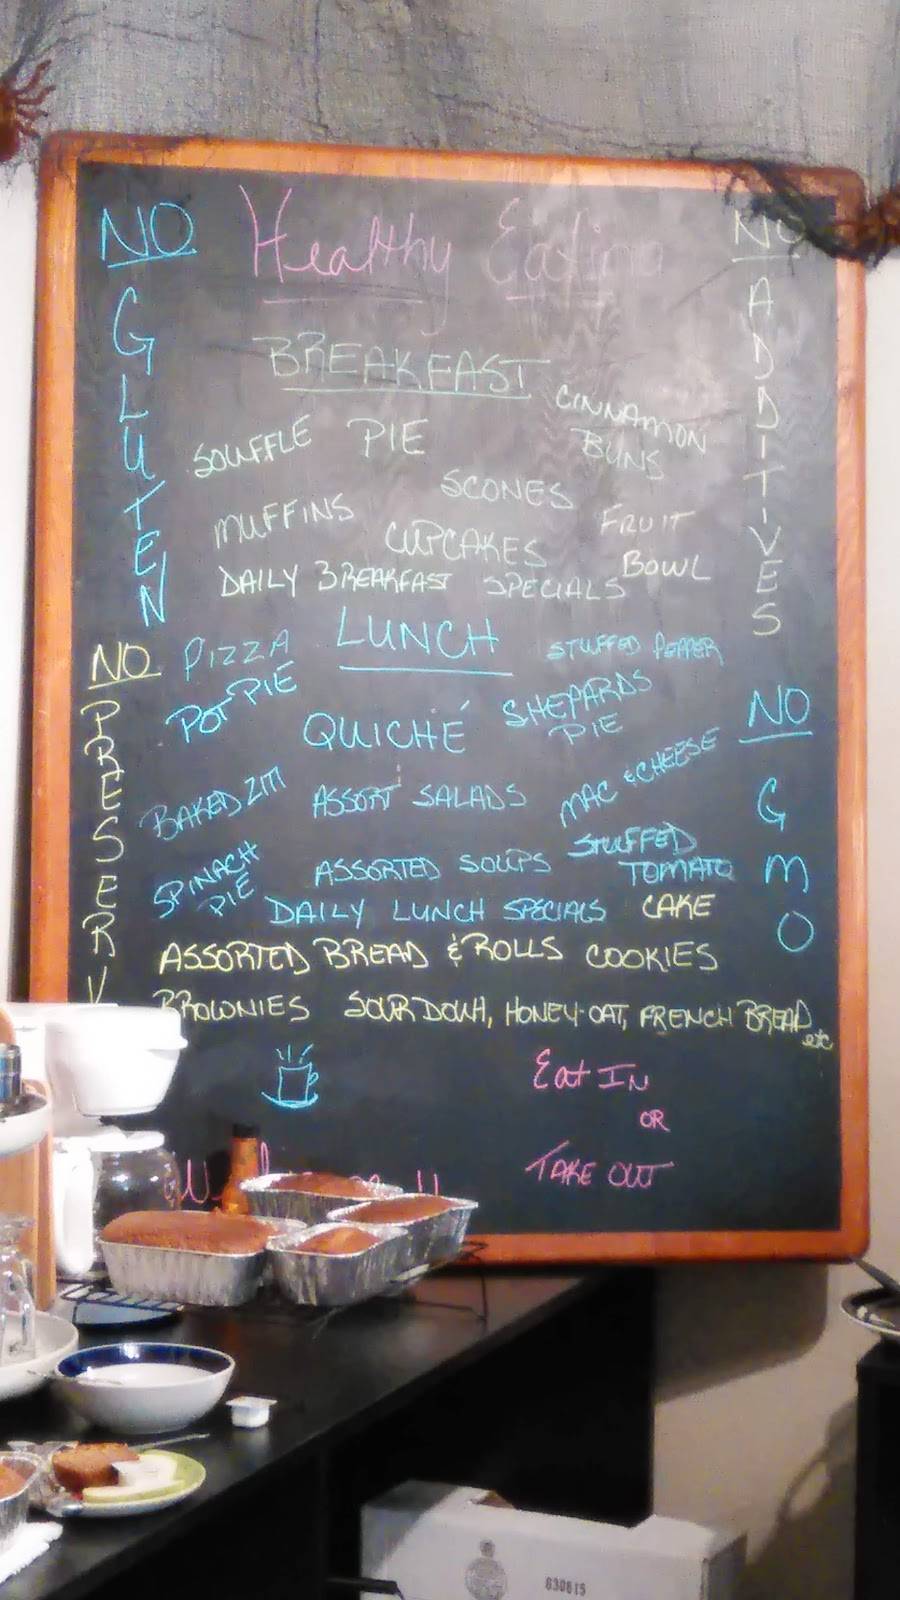 Healthy Eating
NO
GLUTEN
NO
ADDITIVES
BREAKFAST
SOUFFLE PIE
CINNAMON
BUNS
SCONES
MUFFINS
CUPCAKES
FRUIT
BOWL
DAILY BREAKFAST SPECIALS
LUNCH
PIZZA
STUFFED PEPPER
POT PIE
QUICHÉ
SHEPARDS
PIE
BAKED ZITI
ASSORT SALADS
MAC & CHEESE
SPINACH
PIE
ASSORTED SOUPS
STUFFED
TOMATO
DAILY LUNCH SPECIALS
CAKE
ASSORTED BREAD & ROLLS COOKIES
BROWNIES SOUR DOUH, HONEY-OAT, FRENCH BREAD etc
NO
PRESERV
NO
GMO
Eat IN
OR
TAKE OUT
630615